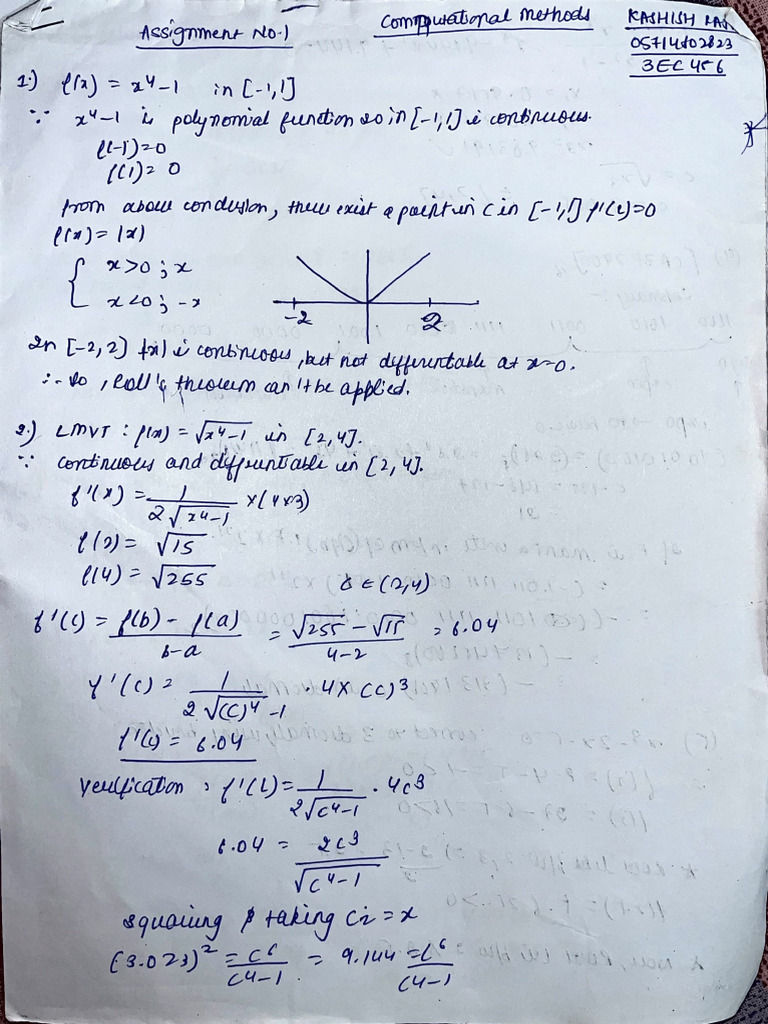 Assignment No.1
Compuational Methods
KASHISH
05714802823
3EC456
1.) f(x) = x⁴-1 in [-1,1]
∵ x⁴-1 is polynomial function so in [-1,1] is continuous.
f(-1)=0
f(1)= 0
from above conclusion, there exist a point in C in [-1,1] f'(c)=0
f(x) = |x|
{ x>0 ; x
x<0 ; -x
-2 2
In [-2,2] f(x) is continuous, but not differentiable at x=0.
∴ so, Roll's theorem can't be applied.
2.) LMVT : f(x) = √x⁴-1 in [2,4].
∵ continuous and differentiable in [2,4].
f'(x) = 1/2√x⁴-1 × (4x3)
f(2) = √15
f(4) = √255 ∈ (2,4)
f'(c) = f(b) - f(a)/b-a = √255 - √15/4-2 = 6.04
f'(c) = 1/2√(c)⁴-1 . 4× (c)³
f'(c) = 6.04
verification : f'(c) = 1/2√c⁴-1 . 4c³
6.04 = 2c³/√c⁴-1
squaring & taking c² = x
(3.023)² = c⁶/c4-1 = 9.144 = c⁶/c4-1